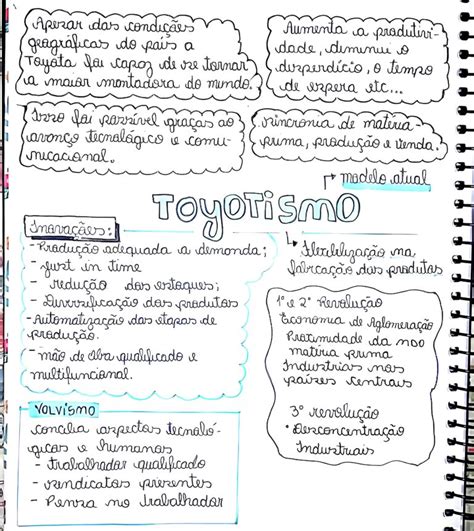 Apesar das condições
geográficas do país a
Toyota foi capaz de se tornar
a maior montadora do mundo.
Aumenta a produtivi-
dade, diminui o
desperdício, o tempo
de espera etc...
Isso foi possível graças ao
avanço tecnológico e comu-
nicacional.
sincronia de matéria-
prima, produção e venda.
modelo atual
TOYOTISMO
Inovações:
- Produção adequada a demanda;
- Just in time
- redução dos estoques;
- Diversificação dos produtos
- Automatização das etapas de
produção.
- mão de obra qualificado e
multifuncional.
Flexibilização na
fabricação dos produtos
1º e 2º Revolução
Economia de Aglomeração
Proximidade da MDO
matéria prima
Industrias nos
países centrais
3º revolução
• Desconcentração
Industriais
VOLVISMO
concilia aspectos tecnoló-
gicos e humanos
- trabalhador qualificado
- sindicatos presentes
- Pensa no trabalhador